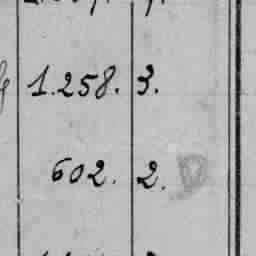 1.258. 3.
602. 2.